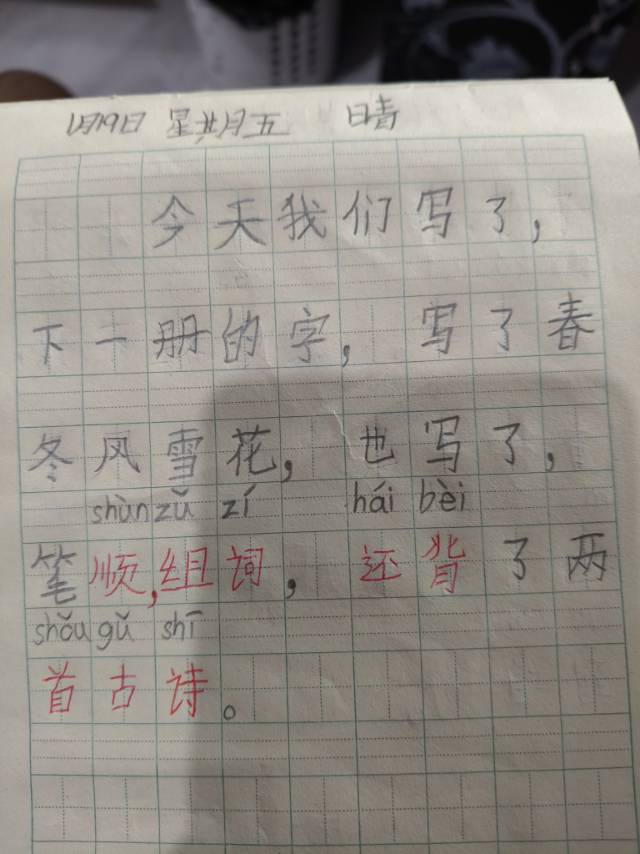 1月19日 星期五 晴
今天我们写了,
下一册的字,写了春
冬风雪花,也写了,
shùn zǔ zí hái bèi
笔顺,组词,还背了两
shǒu gǔ shī
首古诗。